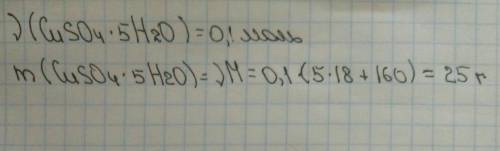 ν(CuSO4·5H2O)=0,1 моль
m(CuSO4·5H2O)=νM=0,1·(5·18+160)=25 г